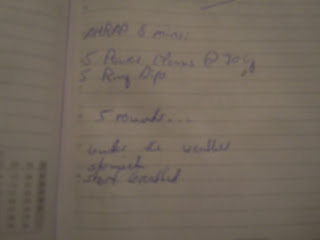 AMRAP 8 mins:
5 Power Cleans @ 70kg
5 Ring Dips
5 rounds...
under the weather
stomach
short breathed